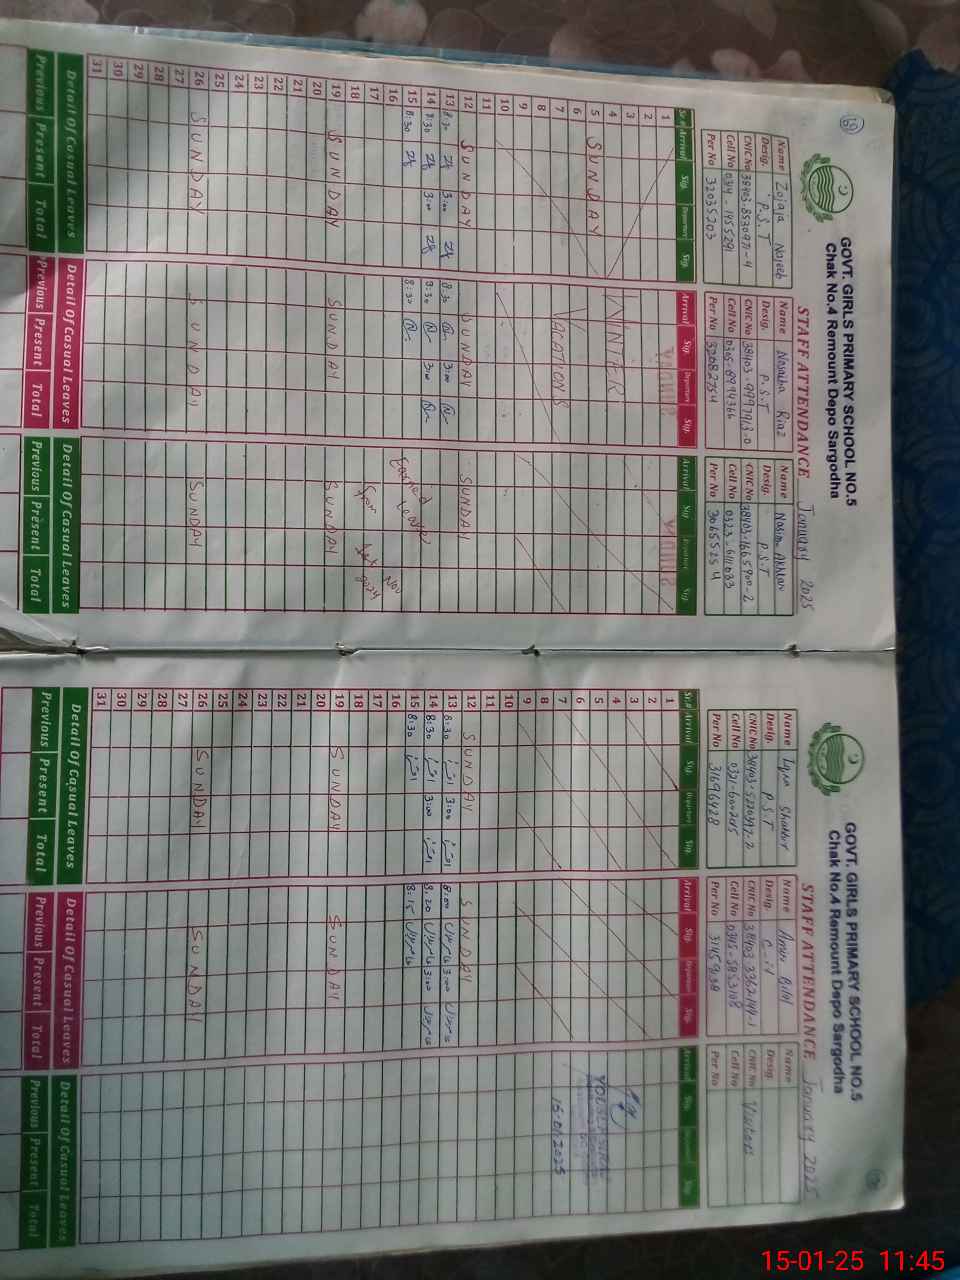 GOVT. GIRLS PRIMARY SCHOOL NO.5
Chak No.4 Remount Depo Sargodha
STAFF ATTENDANCE January 2025
Name Zojaja Najeeb
Desig. P.S.T
CNIC No
Cell No
Per No 32035203
Name Nosaiba Riaz
Desig. P.S.T
CNIC No
Cell No
Per No
Name Nasim Akhtar
Desig. P.S.T
CNIC No
Cell No
Per No 30655254
Sr.# Arrival Sig. Departure Sig.
Arrival Sig. Departure Sig.
Arrival Sig. Departure Sig.
1
2
3
4 WINTER
5 SUNDAY
6
7 VACATIONS
8
9
10
11
12 SUNDAY SUNDAY SUNDAY
13 8:30 3:00 8:30 3:00
14 8:30 3:00 8:30 3:00
15 8:30 8:30
16 Earned Leave
17 from
18
19 SUNDAY SUNDAY SUNDAY
20
21
22
23
24
25
26 SUNDAY SUNDAY SUNDAY
27
28
29
30
31
Detail Of Casual Leaves Detail Of Casual Leaves Detail Of Casual Leaves
Previous Present Total Previous Present Total Previous Present Total
GOVT. GIRLS PRIMARY SCHOOL NO.5
Chak No.4 Remount Depo Sargodha
STAFF ATTENDANCE January 2025
Name Iqra Shakoor
Desig. P.S.T
CNIC No
Cell No
Per No 31696428
Name Amir Bilal
Desig.
CNIC No
Cell No
Per No
Name
Desig.
CNIC No Visitors
Cell No
Per No
Sr.# Arrival Sig. Departure Sig.
Arrival Sig. Departure Sig.
Arrival Sig. Departure Sig.
1
2
3
4
5
6
7 15-01-2025
8
9
10
11
12 SUNDAY SUNDAY
13 8:30 3:00 8:00 3:00
14 8:30 3:00 8:20 3:00
15 8:30 8:15
16
17
18
19 SUNDAY SUNDAY
20
21
22
23
24
25
26 SUNDAY SUNDAY
27
28
29
30
31
Detail Of Casual Leaves Detail Of Casual Leaves Detail Of Casual Leaves
Previous Present Total Previous Present Total Previous Present Total
15-01-25 11:45